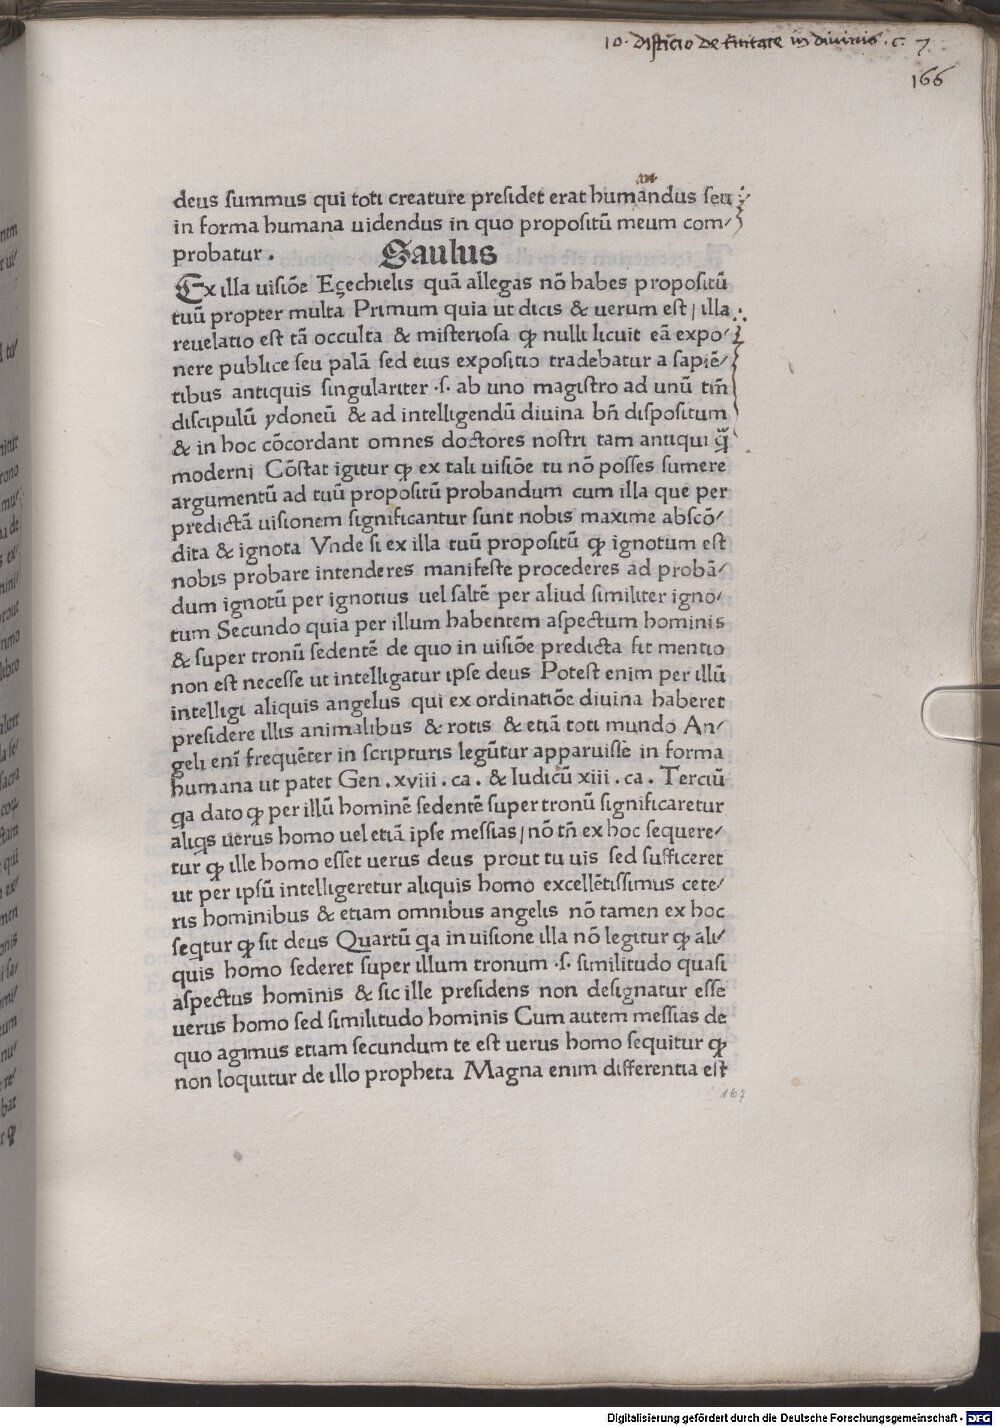 10. distīctio de t'nitate in diuinis . c. 7
166
an
deus summus qui toti creature presidet erat humandus seu
in forma humana uidendus in quo propositū meum com/
probatur .
Saulus
Ex illa uisiōe Eçechielis quā allegas nō habes propositū
tuū propter multa Primum quia ut dicis & uerum est / illa
reuelatio est tā occulta & misteriosa ꝙ nulli licuit eā expo/
nere publice seu palā sed eius expositio tradebatur a sapiē/
tibus antiquis singulariter .s. ab uno magistro ad unū tm̄
discipulū ydoneū & ad intelligendū diuina bn̄ dispositum
& in hoc cōcordant omnes doctores nostri tam antiqui q̄
moderni Cōstat igitur ꝙ ex tali uisiōe tu nō posses sumere
argumentū ad tuū propositū probandum cum illa que per
predictā uisionem significantur sunt nobis maxime abscō/
dita & ignota Vnde si ex illa tuū propositū ꝙ ignotum est
nobis probare intenderes manifeste procederes ad probā/
dum ignotū per ignotius uel saltē per aliud similiter igno/
tum Secundo quia per illum habentem aspectum hominis
& super tronū sedentē de quo in uisiōe predicta fit mentio
non est necesse ut intelligatur ipse deus Potest enim per illū
intelligi aliquis angelus qui ex ordinatiōe diuina haberet
presidere illis animalibus & rotis & etiā toti mundo An/
geli eni᷄ frequēter in scripturis legūtur apparuisse in forma
humana ut patet Gen . xviii . ca . & Iudicū xiii . ca . Terciū
qa dato ꝙ per illū hominē sedentē super tronū significaretur
aliqs uerus homo uel etiā ipse messias / nō tn̄ ex hoc sequere/
tur ꝙ ille homo esset uerus deus prout tu uis sed sufficeret
ut per ipsū intelligeretur aliquis homo excellētissimus cete/
ris hominibus & etiam omnibus angelis nō tamen ex hoc
seqtur ꝙ sit deus Quartū qa in uisione illa nō legitur ꝙ ali/
quis homo sederet super illum tronum .s. similitudo quasi
aspectus hominis & sic ille presidens non designatur esse
uerus homo sed similitudo hominis Cum autem messias de
quo agimus etiam secundum te est uerus homo sequitur ꝙ
non loquitur de illo propheta Magna enim differentia est
167
Digitalisierung gefördert durch die Deutsche Forschungsgemeinschaft - DFG